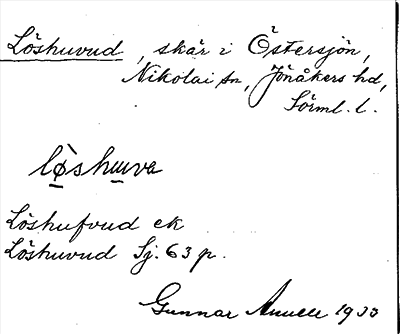 Löshuvud, skär i Östersjön,
Nikolai sn, Jönåkers hd,
Sörml. l.
lòshuva
Löshufvud ek
Löshuvud Sj. 63 p.
Gunnar 1933